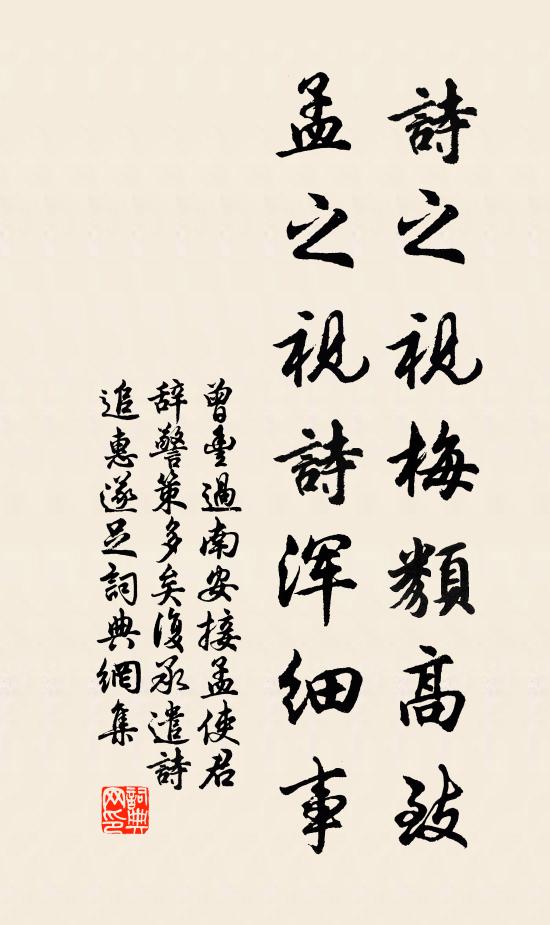 詩之視梅類高致
孟之視詩渾細事
曾豊過南安接孟使君
辞警策多矣復承遣詩
追惠遂足詞典網集
詞典网印